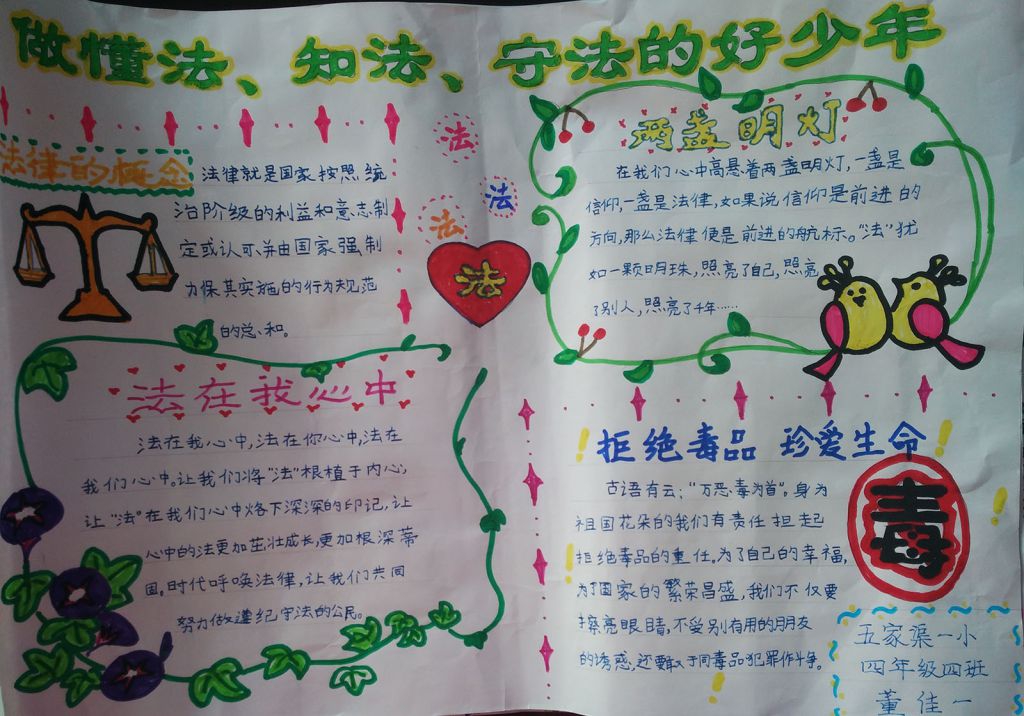 做懂法、知法、守法的好少年
法律的概念
法律就是国家按照统
治阶级的利益和意志制
定或认可,并由国家强制
力保其实施的行为规范
的总、和。
法
法
法
法
两盏明灯
在我们心中高悬着两盏明灯,一盏是
信仰,一盏是法律,如果说信仰是前进的
方向,那么法律便是前进的航标。“法”犹
如一颗明珠,照亮了自己,照亮
了别人,照亮了千年……
法在我心中
法在我心中,法在你心中,法在
我们心中。让我们将“法”根植于内心,
让“法”在我们心中烙下深深的印记,让
心中的法更加茁壮成长,更加根深蒂
固。时代呼唤法律,让我们共同
努力做遵纪守法的公民。
拒绝毒品 珍爱生命
古语有云:“万恶毒为首”。身为
祖国花朵的我们有责任担起
拒绝毒品的重任。为了自己的幸福,
为了国家的繁荣昌盛,我们不仅要
擦亮眼睛,不受别有用的朋友
的诱惑,还要敢于同毒品犯罪作斗争。
毒
五家渠一小
四年级四班
董佳一